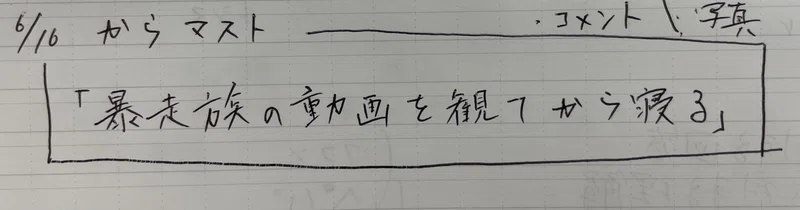 6/16 からマスト ・コメント \ 写真
「暴走族の動画を観てから寝る」